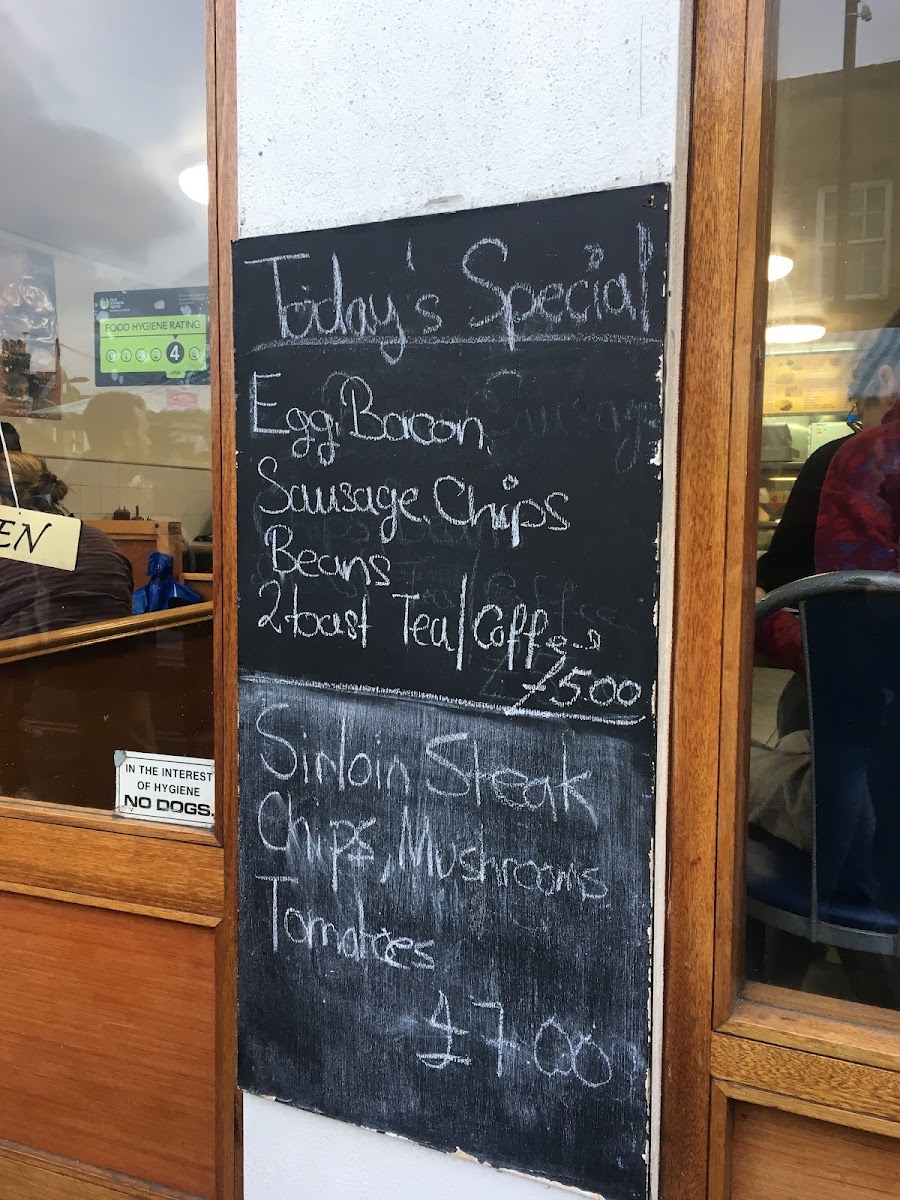 Today's Special
Egg, Bacon,
Sausage, Chips
Beans
2 toast Tea/Coffee
£5.00
Sirloin Steak
Chips, Mushrooms
Tomatoes
£7.00
FOOD HYGIENE RATING
4
EN
IN THE INTEREST
OF HYGIENE
NO DOGS.